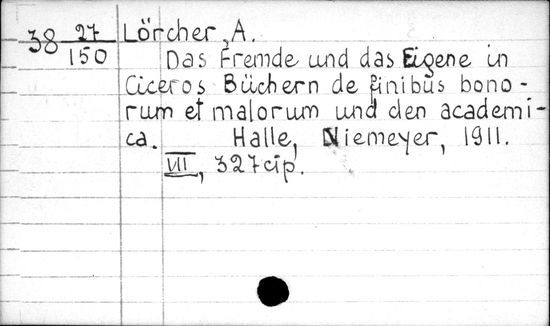 38 27/150 Lörcher, A.
Das Fremde und das Eigene in
Ciceros Büchern de finibus bono-
rum et malorum und den academi-
ca. Halle, Niemeyer, 1911.
VII, 327 стр.